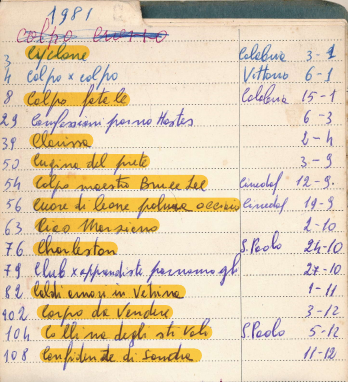 1981
colpo
3 Cyclone Calabria 3-1
4 Colpo x colpo Vittoria 6-1
8 Colpo fatale Calabria 15-1
29 Confessioni porno Hostes 6-3
39 Clarissa 2-4
50 Cugina del prete 3-9
54 Colpo maestro Bruce Lee Cinedaf 12-9.
56 Cuore di leone palma acciaio Cinedaf 19-9
63 Ciao Marziano 2-10
76 Charleston S. Paolo 24-10
79 Club x apprendiste pornomogli 27-10
82 Caldi amori in vetrina 1-11
102 Corpo da vendere 3-12
104 Collina degli stivali S. Paolo 5-12
108 Confidenze di Sandra 11-12